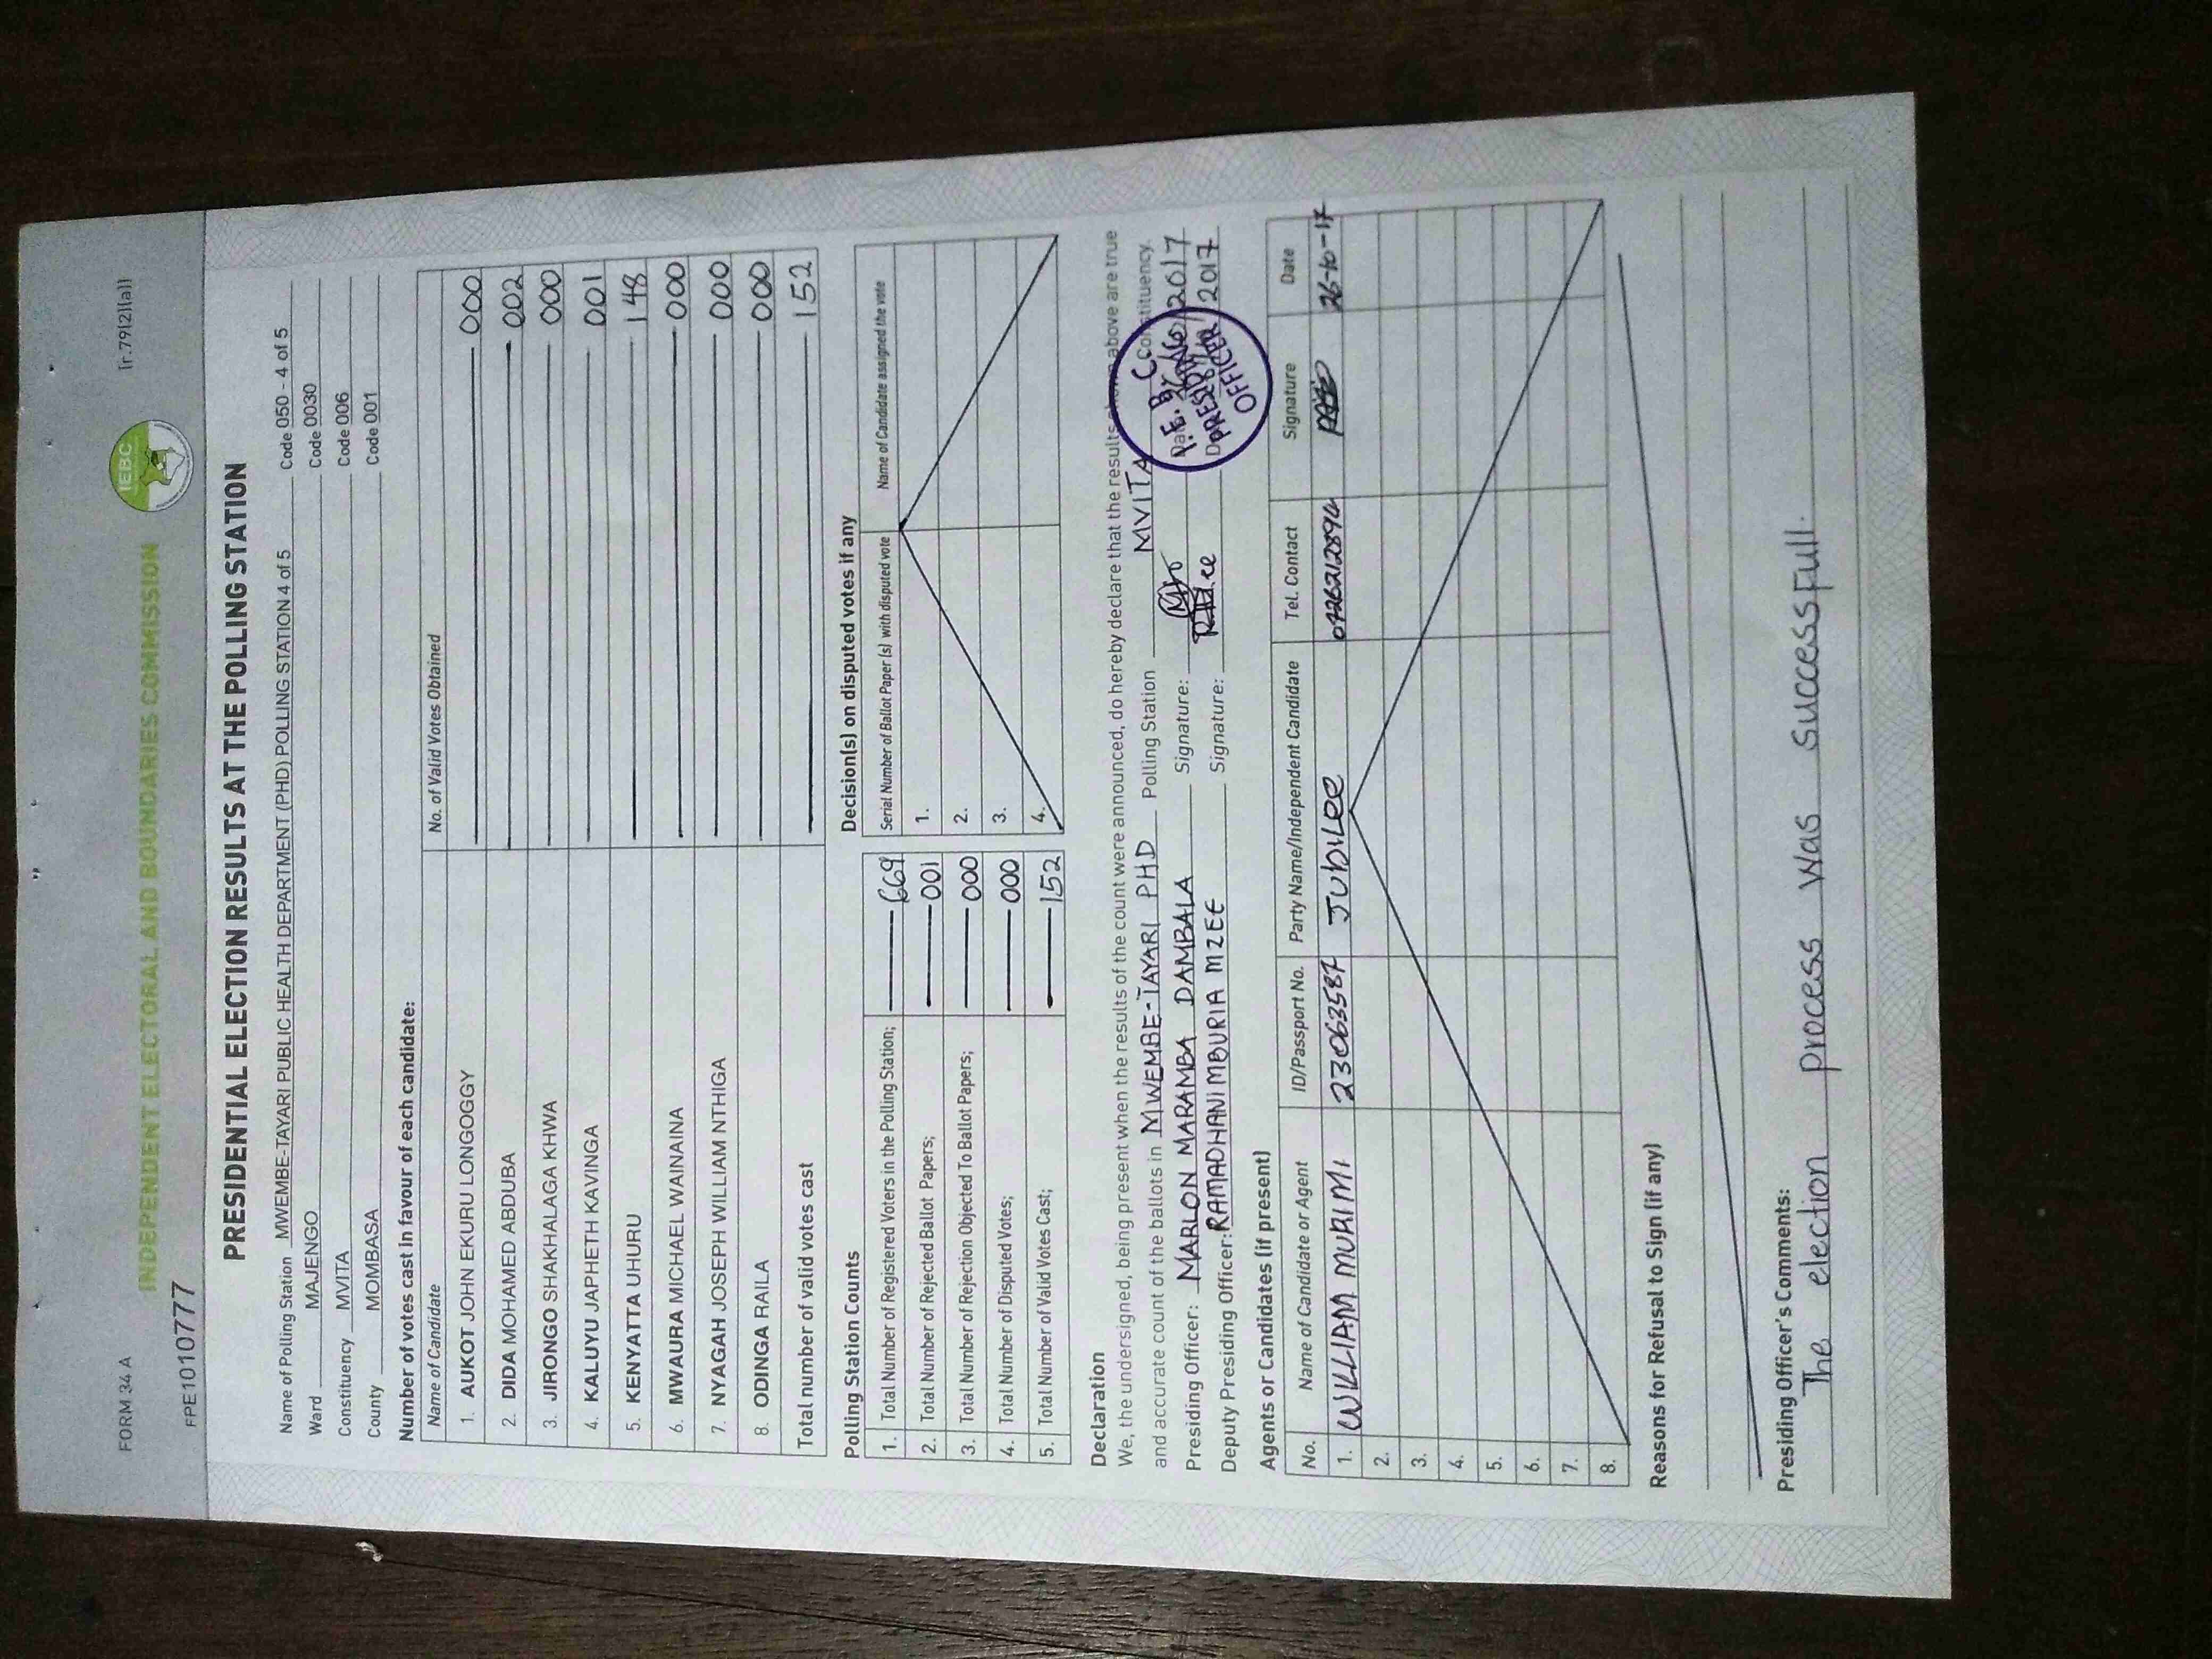 FORM 34 A
(r.79(2)(a))
INDEPENDENT ELECTORAL AND BOUNDARIES COMMISSION
IEBC
FPE1010777
PRESIDENTIAL ELECTION RESULTS AT THE POLLING STATION
Name of Polling Station MWEMBE-TAYARI PUBLIC HEALTH DEPARTMENT (PHD) POLLING STATION 4 of 5 Code 050 - 4 of 5
Ward MAJENGO Code 0030
Constituency MVITA Code 006
County MOMBASA Code 001
Number of votes cast in favour of each candidate:
Name of Candidate No. of Valid Votes Obtained
1. AUKOT JOHN EKURU LONGOGGY 000
2. DIDA MOHAMED ABDUBA 002
3. JIRONGO SHAKHALAGA KHWA 000
4. KALUYU JAPHETH KAVINGA 001
5. KENYATTA UHURU 148
6. MWAURA MICHAEL WAINAINA 000
7. NYAGAH JOSEPH WILLIAM NTHIGA 000
8. ODINGA RAILA 000
Total number of valid votes cast 152
Polling Station Counts
1. Total Number of Registered Voters in the Polling Station; 669
2. Total Number of Rejected Ballot Papers; 001
3. Total Number of Rejection Objected To Ballot Papers; 000
4. Total Number of Disputed Votes; 000
5. Total Number of Valid Votes Cast; 152
Decision(s) on disputed votes if any
Serial Number of Ballot Paper (s) with disputed vote Name of Candidate assigned the vote
1.
2.
3.
4.
Declaration
We, the undersigned, being present when the results of the count were announced, do hereby declare that the results above are true
and accurate count of the ballots in MWEMBE-TAYARI PHD Polling Station MVITA Constituency.
Presiding Officer: MARLON MARAMBA DAMBALA Signature: 2017
Deputy Presiding Officer: RAMADHANI MBURIA MZEE Signature: 2017
I.E.B.C
PRESIDING
OFFICER
Agents or Candidates (if present)
No. Name of Candidate or Agent ID/Passport No. Party Name/Independent Candidate Tel. Contact Signature Date
1. WILLIAM MURIMI 23063587 JUBILEE 0726212894 26-10-17
2.
3.
4.
5.
6.
7.
8.
Reasons for Refusal to Sign (if any)
Presiding Officer's Comments:
The election process was successfull.